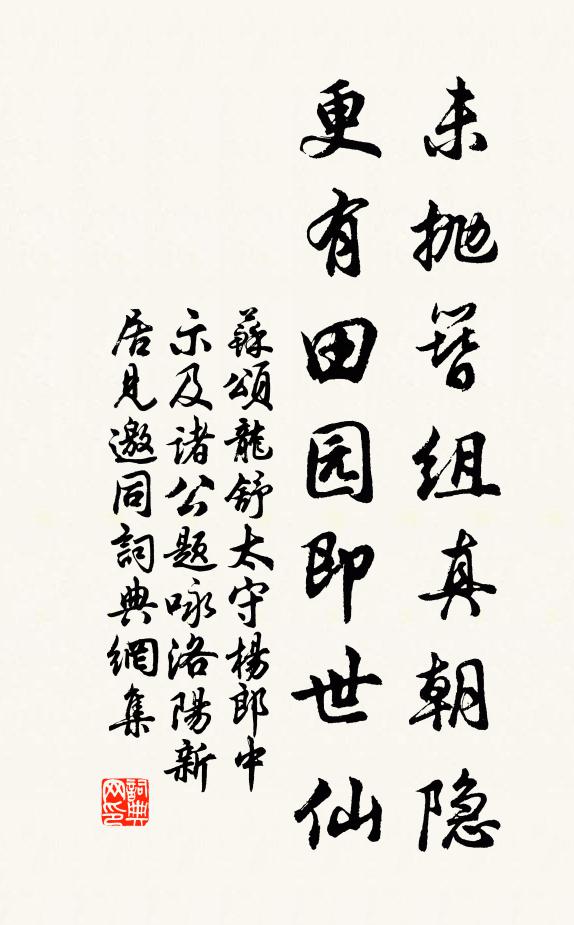 未抛簪组真朝隐
更有田园即世仙
蘇頌龍舒太守楊郎中
示及诸公题咏洛陽新
居見邀同詞典網集
詞典
网印